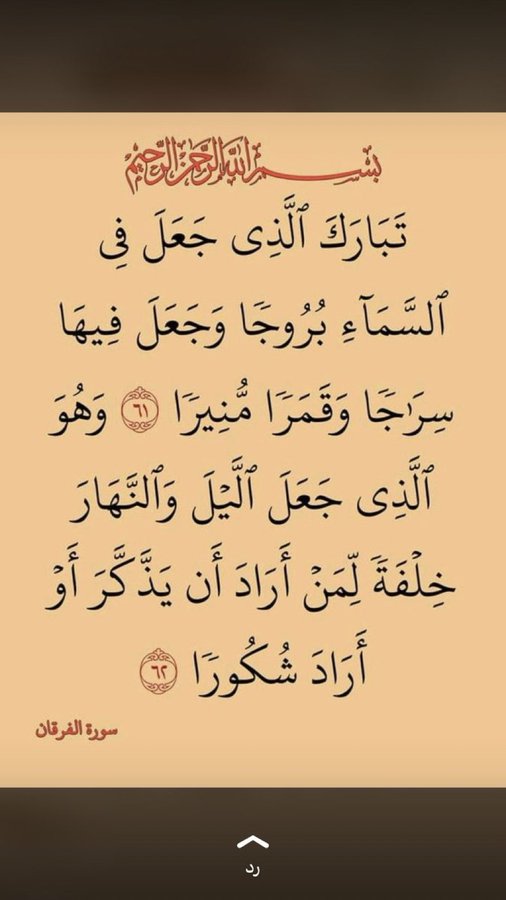 بسم الله الرحمن الرحيم
تَبَارَكَ ٱلَّذِى جَعَلَ فِى
ٱلسَّمَآءِ بُرُوجًا وَجَعَلَ فِيهَا
سِرَٰجًا وَقَمَرًا مُّنِيرًا ٦١ وَهُوَ
ٱلَّذِى جَعَلَ ٱلَّيْلَ وَٱلنَّهَارَ
خِلْفَةً لِّمَنْ أَرَادَ أَن يَذَّكَّرَ أَوْ
أَرَادَ شُكُورًا ٦٢
سورة الفرقان
رد